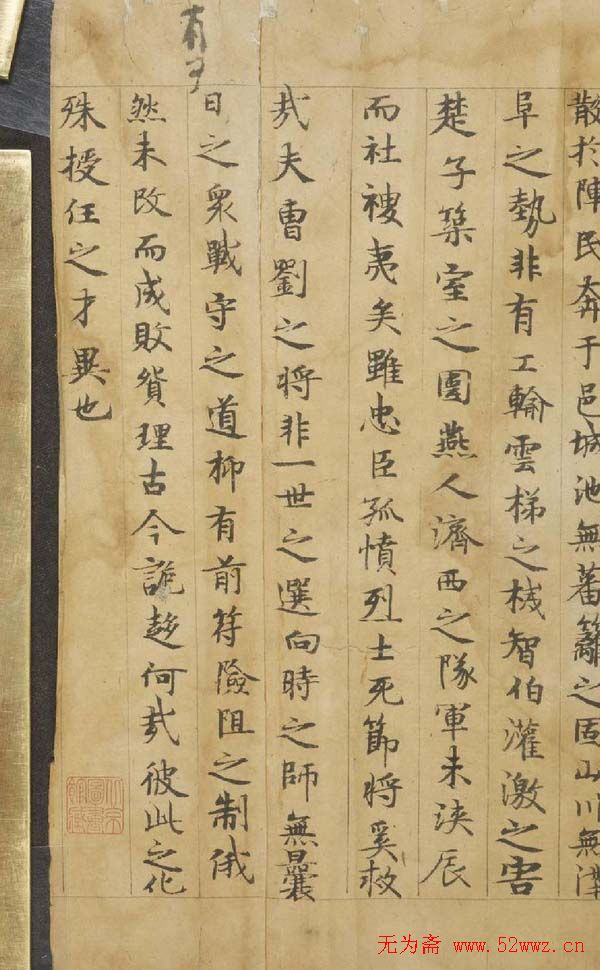 散於陣民奔于邑城池無蕃籬之固山川無溝
阜之勢非有工輸雲梯之械智伯灌激之害
楚子築室之圍燕人濟西之隊軍未浹辰
而社稷夷矣雖忠臣孤憤烈士死節將奚救
哉夫曹劉之將非一世之選向時之師無曩
日之衆戰守之道抑有前符險阻之制俄
然未改而成敗貿理古今詭趍何哉彼此之化
殊授任之才異也
有
无为斋 www.52wwz.cn